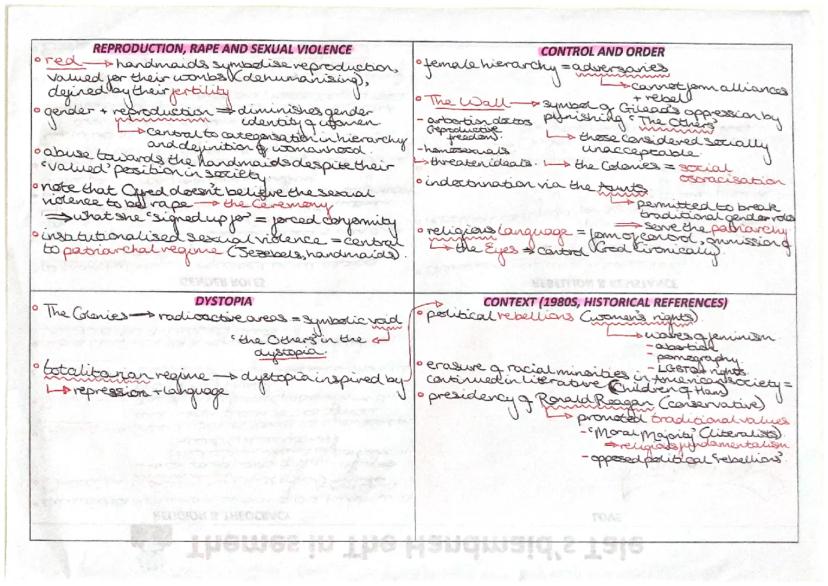 REPRODUCTION, RAPE AND SEXUAL VIOLENCE
• red → handmaids symbolise reproduction,
valued for their wombs (dehumanising),
defined by their fertility
• gender + reproduction ⇒ diminishes gender
identity of women
↳ central to categorisation in hierarchy
and definition of womanhood.
• abuse towards the handmaids despite their
'valued' position in society
• note that Offred doesn't believe the sexual
violence to be rape → the Ceremony
⇒ what she 'signed up for' = forced conformity
• institutionalised sexual violence = central
to patriarchal regime (Jezebels, handmaids).
CONTROL AND ORDER
• female hierarchy = adversaries
↳ cannot form alliances
+ rebel
• The Wall → symbol of Gilead's oppression by
punishing 'The Others'
- abortion doctors
(reproductive
freedom)
- homosexuals
↳ threaten ideals.
↳ those considered socially
unacceptable
↳ the Colonies = social
ostracisation
• indoctrination via the Aunts
↳ permitted to break
traditional gender roles
⇒ serve the patriarchy
• religious language = form of control, omission of
God (ironically)
↳ the Eyes ⇒ control
DYSTOPIA
• The Colonies → radioactive areas = symbolic void
'the Others' in the
dystopia.
• totalitarian regime → dystopia inspired by
↳ repression + language
CONTEXT (1980S, HISTORICAL REFERENCES)
• political rebellions (women's rights)
↳ waves of feminism
- abortion
- pornography
- LGBTQ+ rights
• erasure of racial minorities in American society =
continued in literature (Children of Ham)
• presidency of Ronald Reagan (conservative)
↳ promoted traditional values
- 'Moral Majority' (literalists)
⇒ religious fundamentalism
- opposed political 'rebellions'.
GENDER ROLES
REBELLION & RESISTANCE
RELIGION & THEOCRACY
LOVE
Themes in The Handmaid's Tale